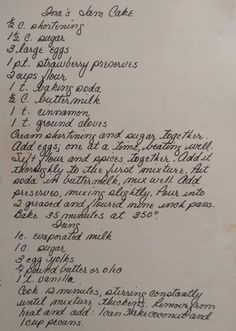 Ina's Jam Cake
½ C. shortening
1½ C. sugar
3 large eggs
1 pt. strawberry preserves
3 cups flour
1 t. baking soda
½ C. buttermilk
1 t. cinnamon
1 t. ground cloves
Cream shortening and sugar together.
Add eggs, one at a time, beating well.
Sift flour and spices together. Add it
thoroughly to the first mixture. Put
soda in buttermilk, mix well. Add
preserves, mixing slightly. Pour into
2 greased and floured nine inch pans.
Bake 35 minutes at 350°.
Icing
1 c. evaporated milk
1 C sugar
3 egg yolks
¼ pound butter or oleo
1 t. vanilla
Cook 12 minutes, stirring constantly
until mixture thickens. Remove from
heat and add: 1 can flake coconut and
1 cup pecans.